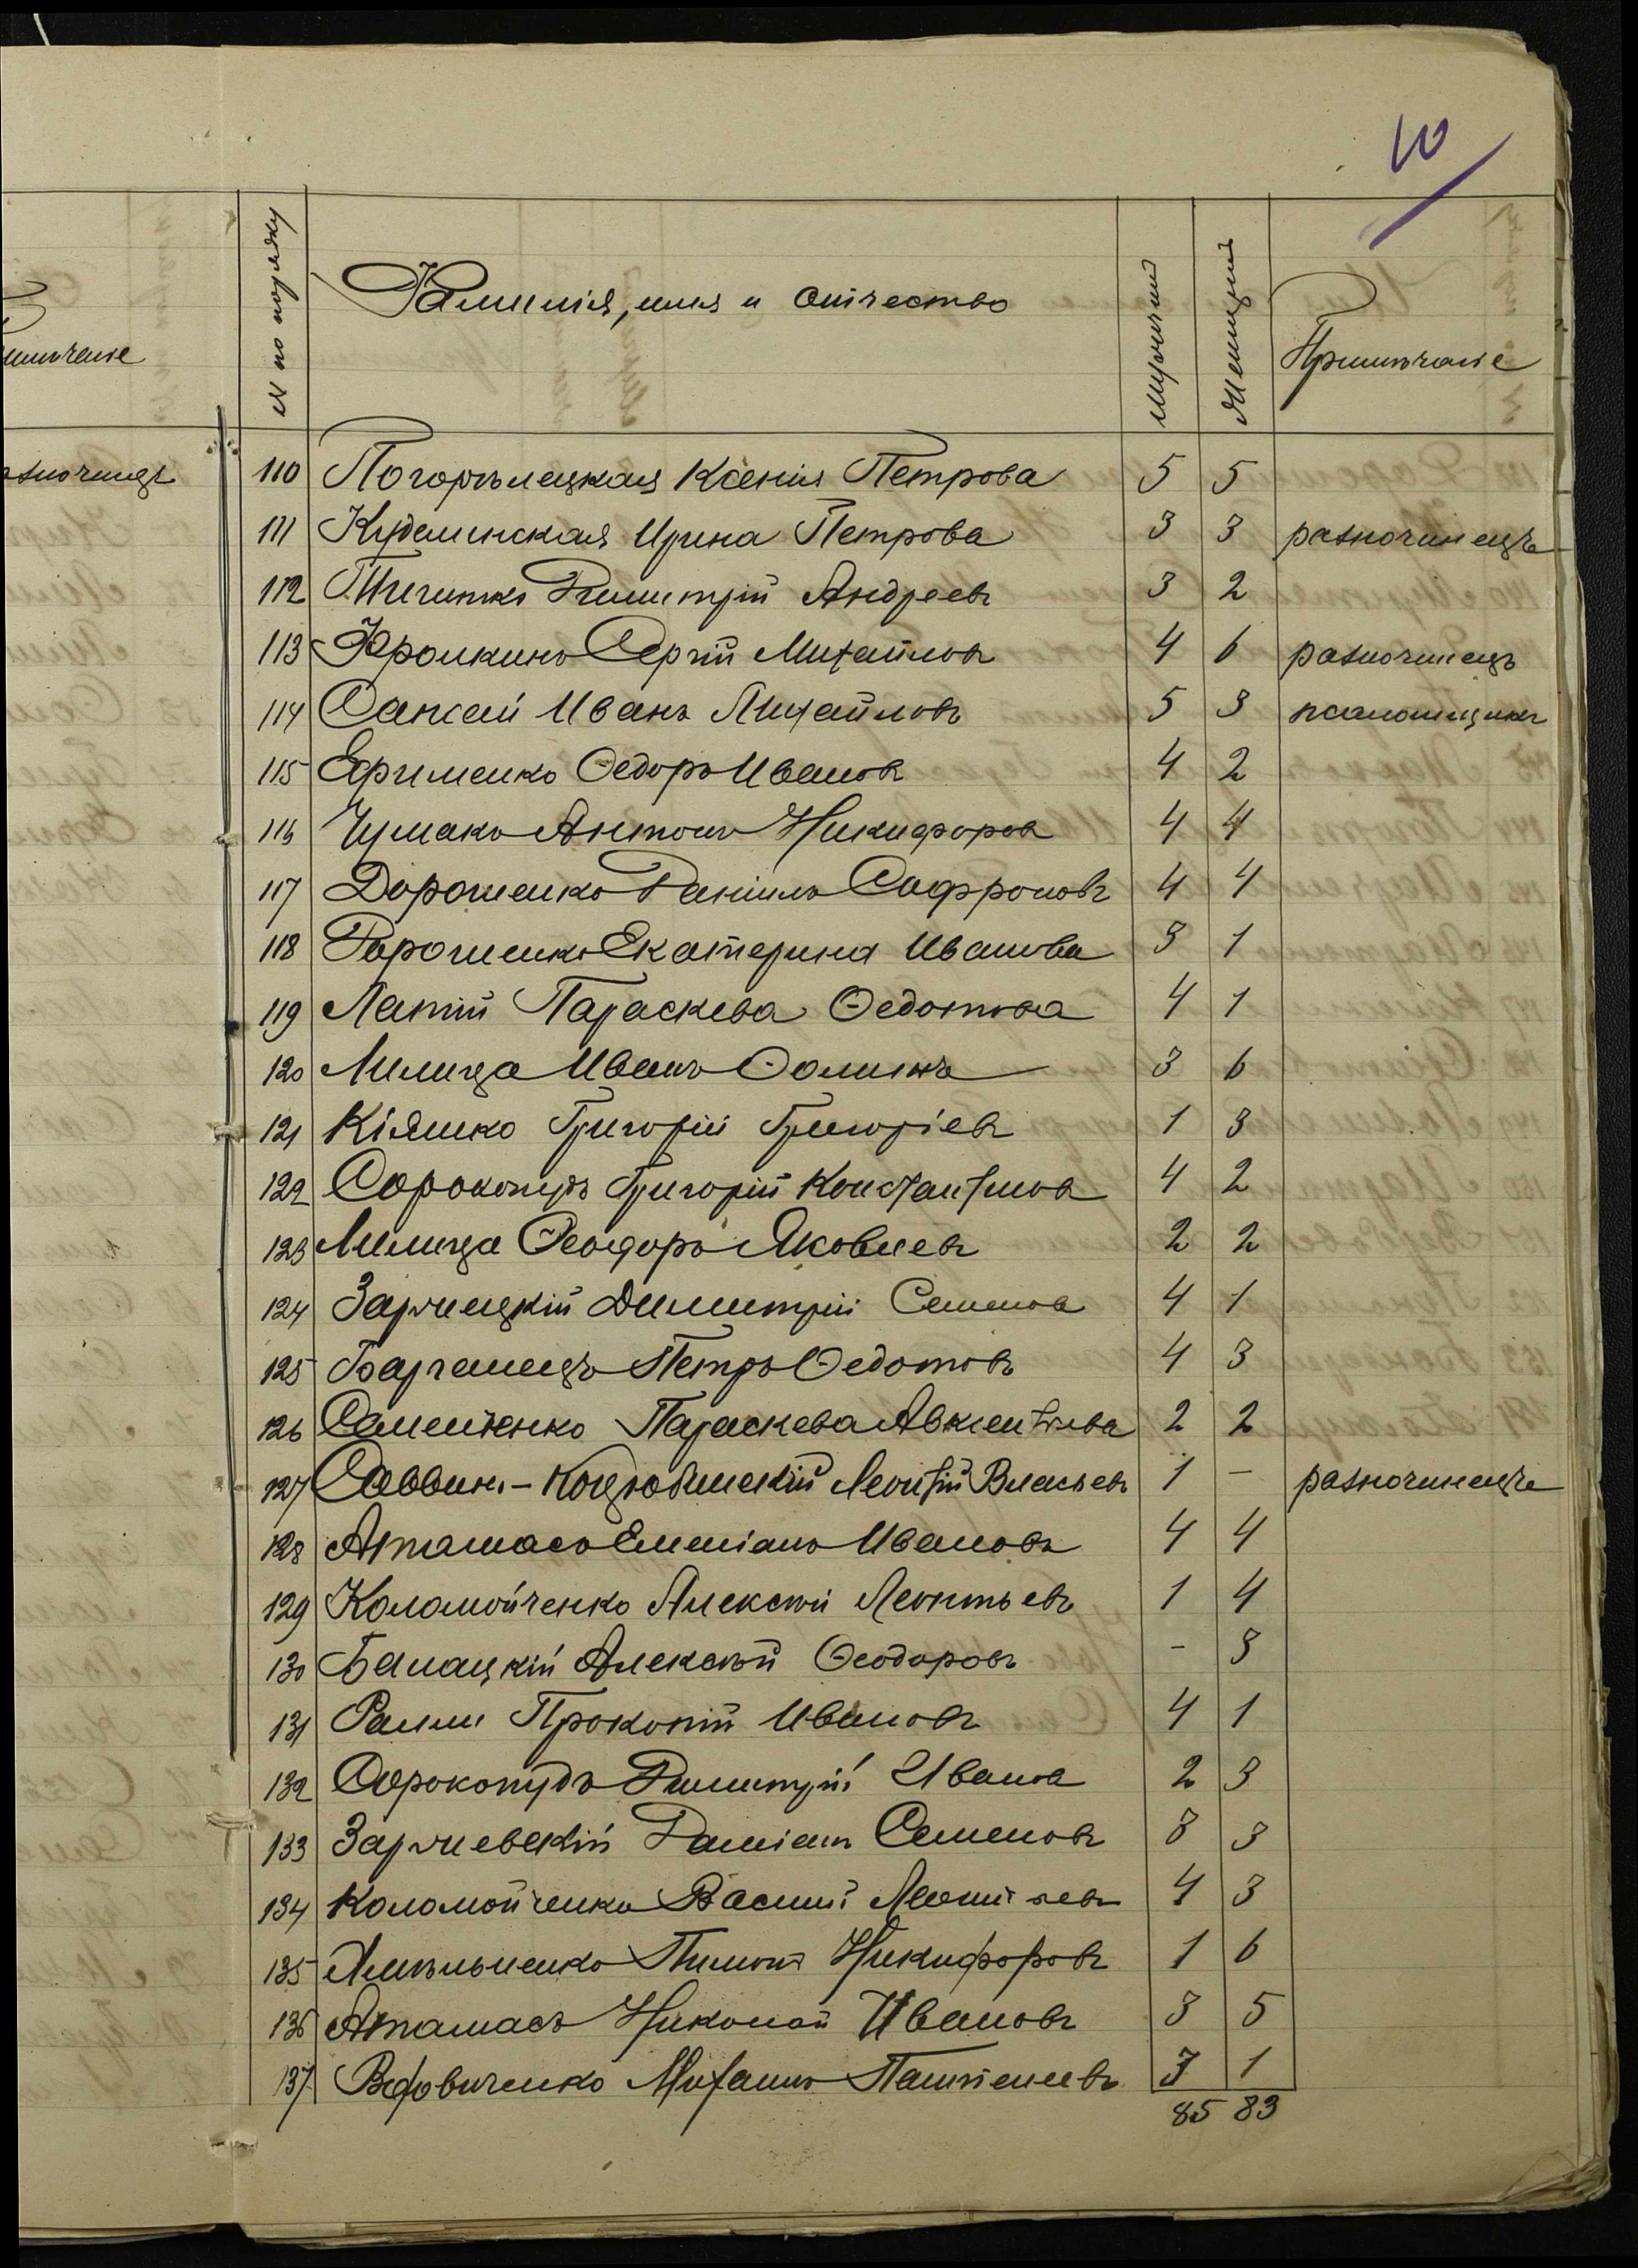 10
№ по порядку
Фамилія, имя и отчество
Мужчинъ
Женщинъ
Примѣчаніе
110 Погорѣлецкая Ксенія Петрова 5 5
111 Куделинская Ирина Петрова 3 3 разночинецъ
112 Димитрій Андреевъ 3 2
113 Фролкинъ Сергій Михайловъ 4 6 разночинецъ
114 Санжай Иванъ Михайловъ 5 3 псаломщикъ
115 Ефименко Ѳедоръ Ивановъ 4 2
116 Чумакъ Антонъ Никифоровъ 4 4
117 Дорошенко Даніилъ Софроновъ 4 4
118 Дорошенко Екатерина Иванова 3 1
119 Лапій Параскева Ѳедотова 4 1
120 Милица Иванъ Ѳоминъ 3 6
121 Кіяшко Григорій Григоріевъ 1 3
122 Сорокопудъ Григорій Константиновъ 4 2
123 Милица Ѳеодоръ Яковлевъ 2 2
124 Зармицкій Димитрій Семеновъ 4 1
125 Петръ Ѳедотовъ 4 3
126 Семененко Параскева Авксентіева 2 2
127 Саввинъ-Коцюбинскій Леонтій Власьевъ 1 - разночинецъ
128 Атамасъ Емеліанъ Ивановъ 4 4
129 Коломойченко Алексѣй Леонтьевъ 1 4
130 Балацкій Алексѣй Ѳеодоровъ - 3
131 Ралли Прокопій Ивановъ 4 1
132 Сорокопудъ Димитрій Ивановъ 2 3
133 Даміанъ Семеновъ 3 3
134 Коломойченко Василій Леонтьевъ 4 3
135 Амельченко Пименъ Никифоровъ 1 6
136 Атамасъ Николай Ивановъ 3 5
137 Вдовиченко Михаилъ 3 1
85 83